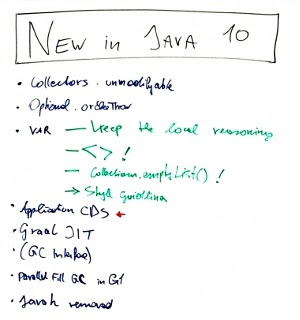 NEW in JAVA 10
• Collectors. unmodifyable
• Optional. orElseThrow
• VAR — keep the local reasoning
— <> !
— Collections.emptyList() !
→ Style Guidlines
• Application CDS ←
• Graal JIT
• (GC Interface)
• Parallel Full GC in G1
• Javah removed